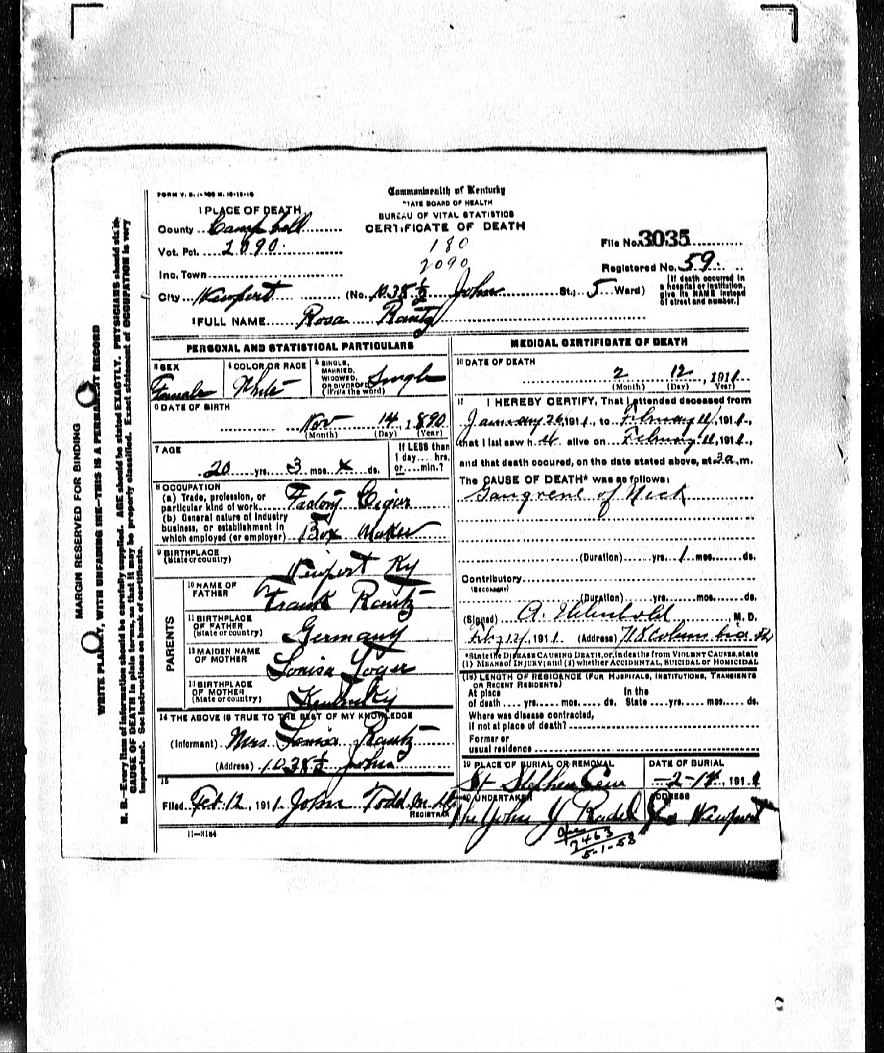 FORM V. S. 1-
Commonwealth of Kentucky
STATE BOARD OF HEALTH
BUREAU OF VITAL STATISTICS
CERTIFICATE OF DEATH
1 PLACE OF DEATH
County Campbell
Vot. Pct. 2090.
180
2090
File No. 3035
Inc. Town
Registered No. 59.
City Newport (No. 1038 1/2 John St.; 5 Ward)
[If death occurred in a hospital or institution, give its NAME instead of street and number.]
2 FULL NAME Rosa Rautz
PERSONAL AND STATISTICAL PARTICULARS
3 SEX
Female
4 COLOR OR RACE
White
5 SINGLE, MARRIED, WIDOWED, OR DIVORCED (Write the word)
Single
6 DATE OF BIRTH
Nov 14, 1890
(Month) (Day) (Year)
7 AGE
20 yrs. 3 mos. x ds.
If LESS than 1 day ... hrs. or ... min.?
8 OCCUPATION
(a) Trade, profession, or particular kind of work Factory Cigar
(b) General nature of industry business, or establishment in which employed (or employer) Box Maker
9 BIRTHPLACE
(State or country)
Newport Ky
PARENTS
10 NAME OF FATHER
Frank Rautz
11 BIRTHPLACE OF FATHER
(State or country)
Germany
12 MAIDEN NAME OF MOTHER
Louisa
13 BIRTHPLACE OF MOTHER
(State or country)
Kentucky
14 THE ABOVE IS TRUE TO THE BEST OF MY KNOWLEDGE
(Informant) Mrs. Louisa Rautz
(Address) 1038 1/2 John
15
Filed Feb. 12, 1911. John Todd
REGISTRAR
11-3184
MEDICAL CERTIFICATE OF DEATH
16 DATE OF DEATH
2 12, 1911
(Month) (Day) (Year)
17 I HEREBY CERTIFY, That I attended deceased from
January 26, 1911, to February 11, 1911.,
that I last saw h er alive on February 11, 1911.,
and that death occured, on the date stated above, at 3 a. m.
The CAUSE OF DEATH* was as follows:
Gangrene of Neck
(Duration) yrs. 1 mos. ds.
Contributory
(SECONDARY)
(Duration) yrs. mos. ds.
(Signed) A. Helmbold M. D.
Feb. 12, 1911. (Address) 718 Columbia St
*State the DISEASE CAUSING DEATH, or, in deaths from VIOLENT CAUSES, state
(1) MEANS OF INJURY; and (2) whether ACCIDENTAL, SUICIDAL OR HOMICIDAL
(18) LENGTH OF RESIDENCE (FOR HOSPITALS, INSTITUTIONS, TRANSIENTS OR RECENT RESIDENTS)
At place of death yrs. mos. ds. In the State yrs. mos. ds.
Where was disease contracted,
if not at place of death?
Former or
usual residence
19 PLACE OF BURIAL OR REMOVAL
St Stephen Cem
DATE OF BURIAL
2-14, 1911
20 UNDERTAKER
The John Radel Co
ADDRESS
Newport
2463
5-1-58
MARGIN RESERVED FOR BINDING
WRITE PLAINLY, WITH UNFADING INK—THIS IS A PERMANENT RECORD
N. B.—Every item of information should be carefully supplied. AGE should be stated EXACTLY. PHYSICIANS should state
CAUSE OF DEATH in plain terms, so that it may be properly classified. Exact statement of OCCUPATION is very
important. See instructions on back of certificate.